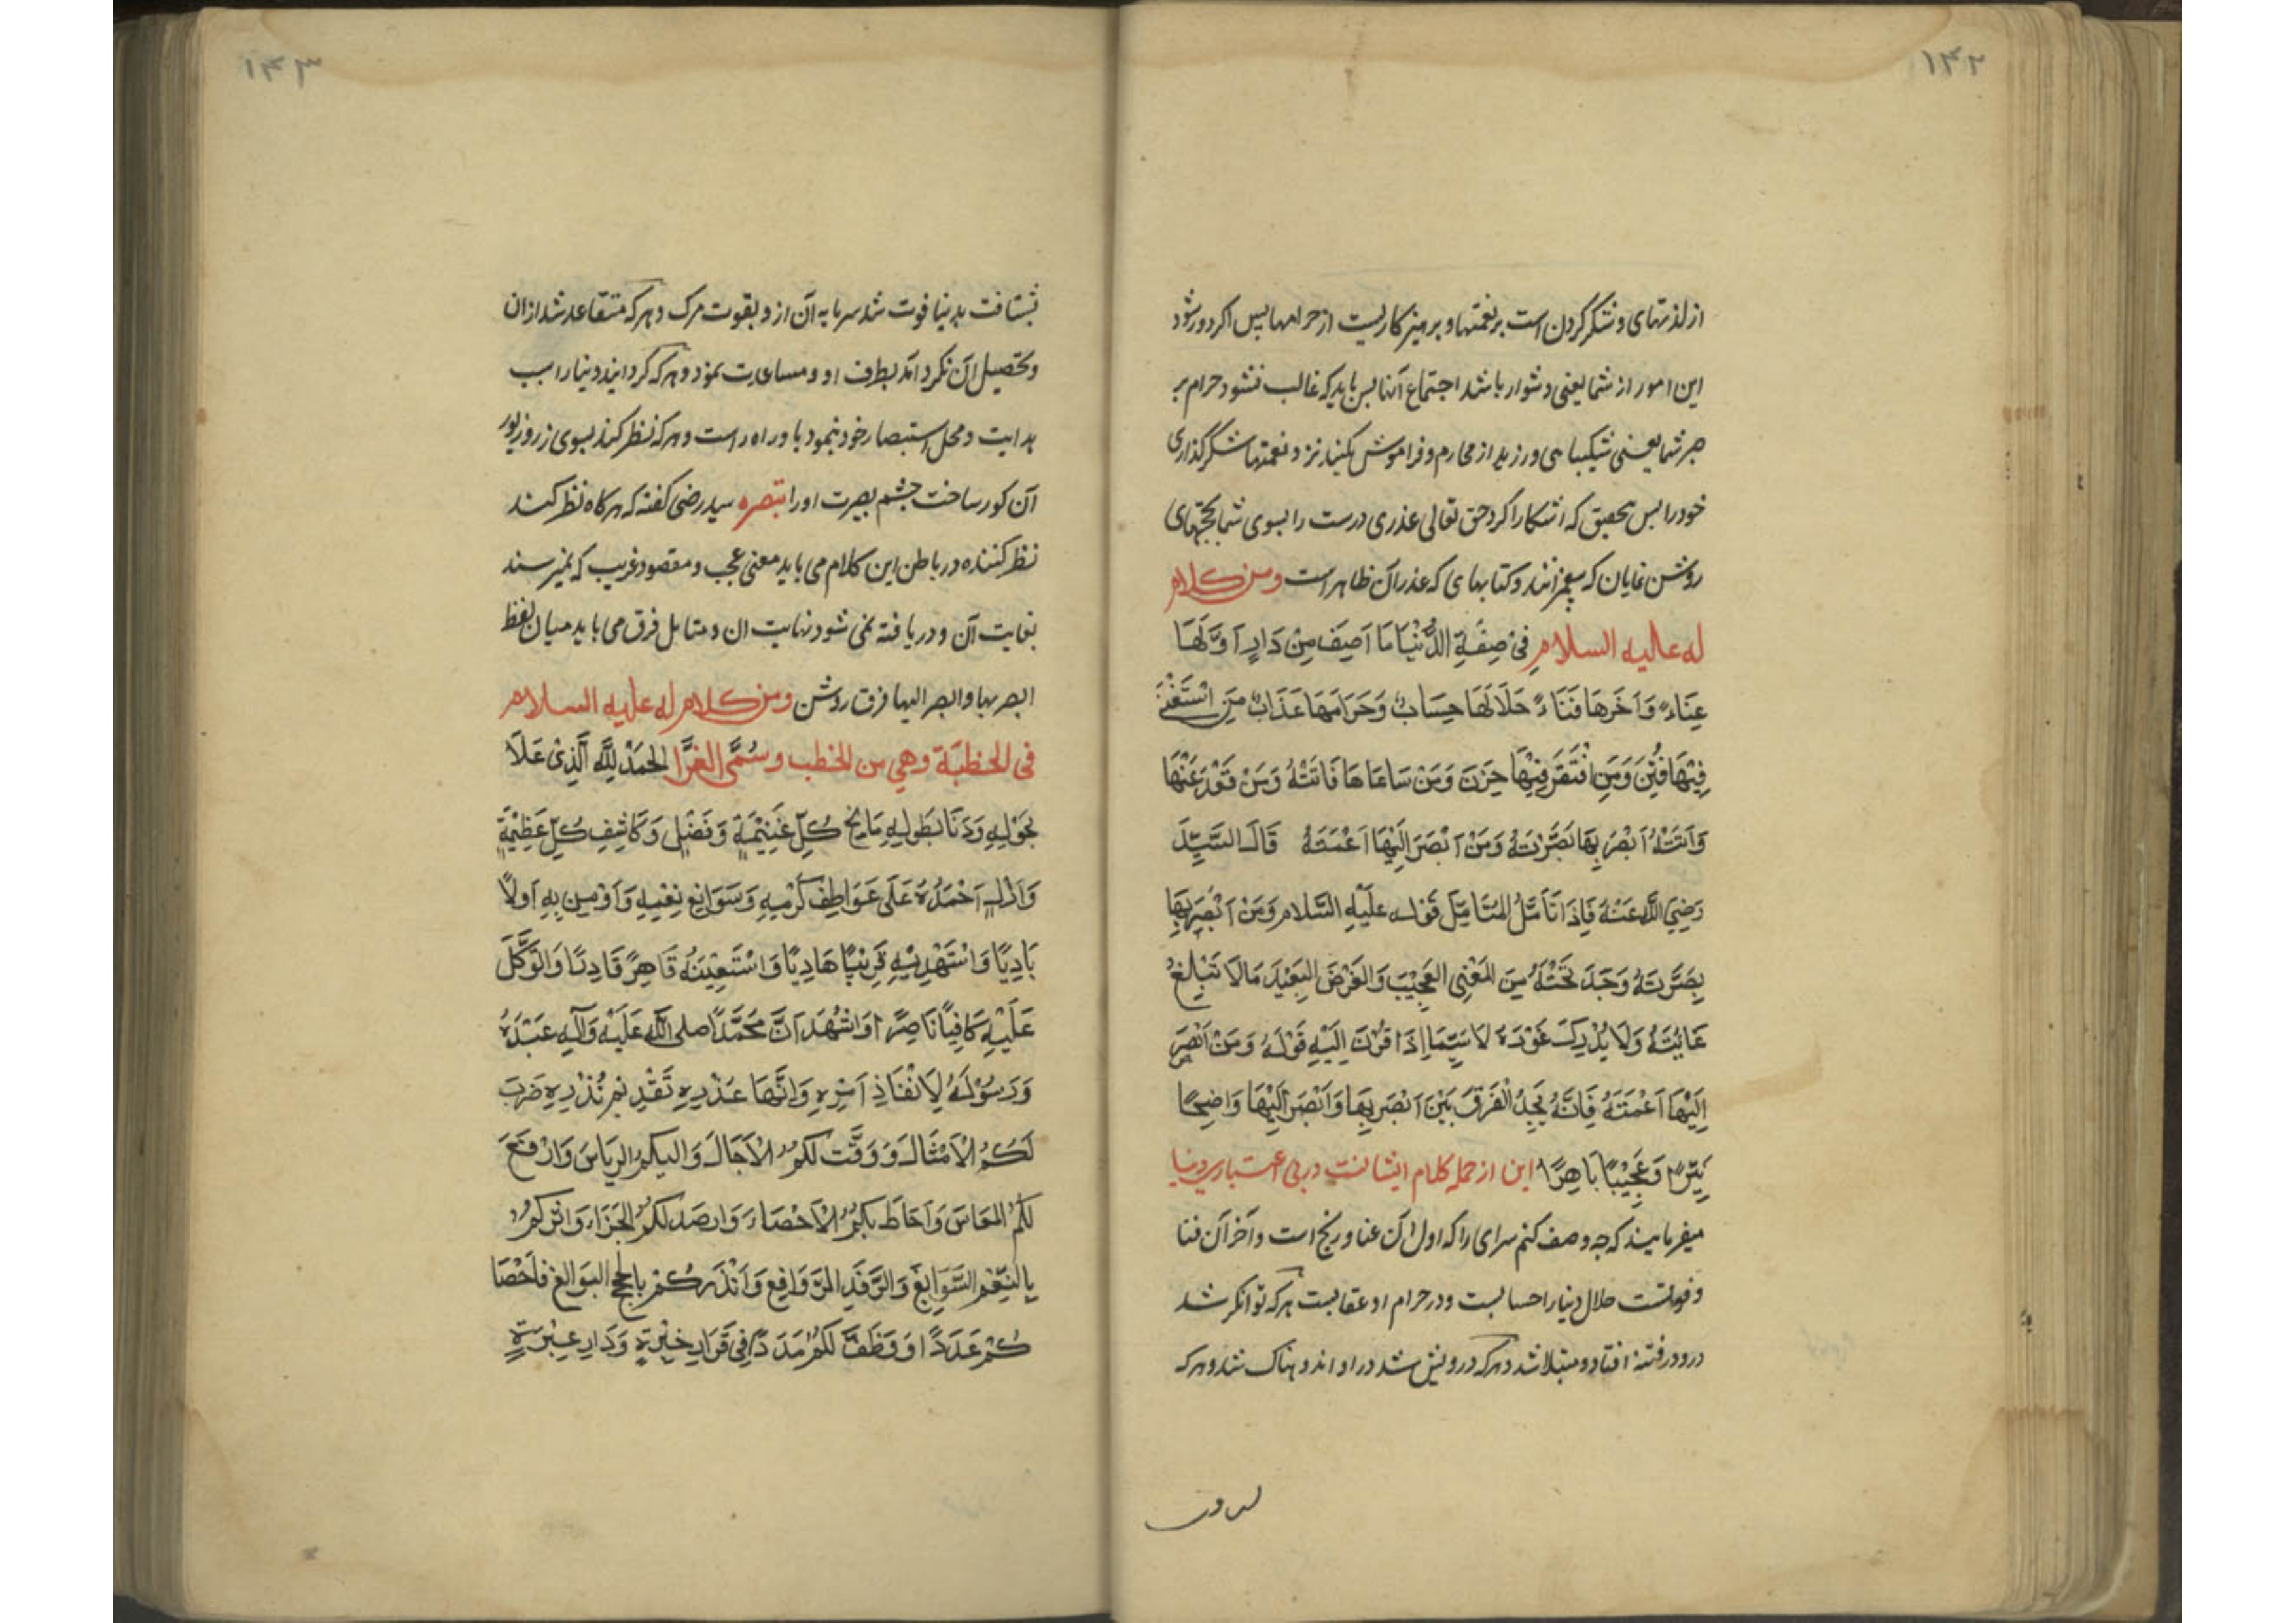 ۱۴۲
از لذتهای و شکر کردن است بر نعمتها و پرهیز کاریست از حرامها پس اگر دور شود
این امور از شما یعنی دشوار باشد اجتماع آنها پس باید که غالب نشود حرام بر
صبر شما یعنی شکیبا می ورزید از محارم و فراموش مکنید نزد نعمتها شکر گذاری
خود را پس بتحقیق که آشکارا کرد حق تعالی عذری درست را بسوی شما بحجتهای
روشن نمایان که پیغمبرانند و کتابهای که عذر آن ظاهر است ومن كلام
له عليه السلام فِي صِفَةِ الدُّنْيَا مَا اَصِفُ مِنْ دَارٍ اَوَّلُهَا
عِنَاءٌ وَاَخَرُهَا فَنَاءٌ حَلَالُهَا حِسَابٌ وَحَرَامُهَا عَذَابٌ مَنِ اسْتَغْنَى
فِيْهَا فُتِنَ وَمَنِ افْتَقَرَ فِيْهَا حَزِنَ وَمَنْ سَاعَاهَا فَاتَتْهُ وَمَنْ قَعَدَ عَنْهَا
وَاتَتْهُ اَبْصَرَ بِهَا بَصَّرَتْهُ وَمَنْ اَبْصَرَ اِلَيْهَا اَعْمَتْهُ قَالَ السَّيِّدُ
رَضِيَ اللهُ عَنْهُ فَاِذَا تَاَمَّلَ المُتَامِّلُ قَوْلَه عَلَيْهِ السَّلام وَمَنْ اَبْصَرَ بِهَا
بَصَّرَتْهُ وَجَدَ تَحْتَهُ مِنَ المَعْنِى العَجِيْبِ وَالغَرَضِ البَعِيْدِ مَالَا تَبْلُغُ
غَايَتَهُ وَلَا يُدْرِكُ غَوْرَهُ لَاسَيِّمَا اِذَا قَرَنَ اِلَيْهِ قَوْلَهُ وَمَنْ اَبْصَرَ
اِلَيْهَا اَعْمَتْهُ فَاِنَّهُ يَجِدُ الْفَرْقَ بَيْنَ اَبْصَرَ بِهَا وَاَبْصَرَ اِلَيْهَا وَاضِحًا
نَيِّرًا وَعَجِيْبًا بَاهِرًا این از جمله کلام ایشانست در بی اعتباری دنیا
میفرمایند که چه وصف کنم سرای را که اول آن عنا و رنج است و آخر آن فنا
و فوتست حلال دنیا را حسابست و در حرام او عقابست هر که توانگر شد
درو در فتنه افتاد و مبتلا شد و هر که درویش شد در او اندوهناک شد و هر که
۱۴۳
بشتافت بدنیا فوت شد سرمایه آن از و بقوت مرک و هر که متقاعد شد از ان
و تحصیل آن نکرد آمد بطرف او و مساعدت نمود و هر که گردانید دنیا را سبب
هدایت و محل استبصار خود بنمود با و راه راست و هر که نظر کند بسوی زر و زیور
آن کور ساخت چشم بصیرت او را تبصره سید رضی گفته که هر کاه نظر کند
نظر کننده در باطن این کلام می یابد معنی عجب و مقصود غریب که نمیرسند
بغایت آن و دریافته نمی شود نهایت ان و متامل فرق می یابد میان لفظ
ابصر بها و ابصر الیها فرق روشن ومن كلام له عليه السلام
فى الخطبَة وهي من الخطب وسُمَّى الغَرَّا الحَمْدُ لِلّٰهِ الَّذِىْ عَلَا
بِحَوْلِهِ وَدَنَا بِطَولِهِ مَانِحِ كُلِّ غَنِيْمَةٍ وَفَضْلٍ وَكَاشِفِ كُلِّ عَظِيْمَةٍ
وَاَزْلٍ اَحْمَدُهُ عَلَى عَوَاطِفِ كَرَمِهِ وَسَوَابِغِ نِعَمِهِ وَاَوْمِنُ بِهِ اَوَلًا
بَادِيًا وَاسْتَهْدِيْهِ قَرِيْبًا هَادِيًا وَاسْتَعِيْنُهُ قَاهِرًا قَادِرًا وَاتَوَكَّلُ
عَلَيْهِ كَافِيًا نَاصِرًا وَاشْهَدُ اَنَّ مُحَمَّدًا صلى الله عَلَيْهِ وَآلِهِ عَبْدُهُ
وَرَسُوْلُهُ لِاِنْفَاذِ اَمْرِهِ وَاِنْهَا عُذْرِهِ تَقْدِيْمِ نُذُرِهِ ضَرَبَ
لَكُمُ الْاَمْثَالَ وَوَقَّتَ لَكُمُ الْاَجَالَ وَالبَسَكُمُ الرِيَاسَ وَارْفَعَ
لَكُمُ المَعَاسَ وَاَحَاطَ بِكُمُ الْاَحْصَاءَ وَارصَدَ لَكُمُ الجَزَاءَ وَاثَرَكُمْ
بِالنِّعَمِ السَّوَابِغِ وَالرَّفَدِ الرَّوَافِعِ وَاَنْذَرَكُمْ بِالحُجَجِ البَوَالِغِ فَاَحْصَا
كُمْ عَدَدًا وَوَظَفَ لَكُمْ مُدَدًا فِي قَرَارِ خِبْرَةٍ وَدَارِ عِبْرَةٍ